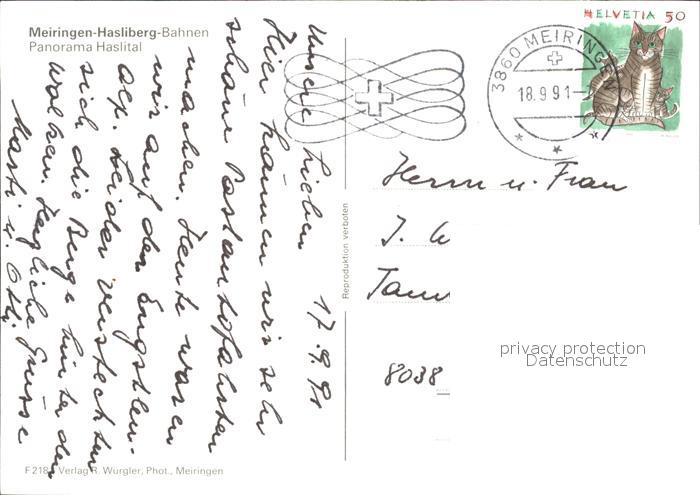 Meiringen-Hasliberg-Bahnen
Panorama Haslital
HELVETIA 50
3860 MEIRINGEN
18.9.91
17.9.91
Unsere Lieben
Hier können wir sehr
schöne Postautofahrten
machen. Heute waren
wir auf der Engstlen-
alp. Leider versteckten
sich die Berge hinter den
Wolken. Herzliche Grüsse
Herrn u. Frau
J.
8038
Reproduktion verboten
privacy protection
Datenschutz
F 218 Verlag R. Würgler, Phot., Meiringen